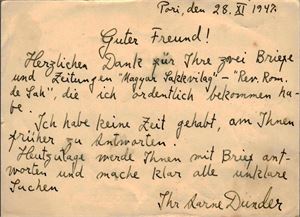 Pori, den 28. XI 1947.
Guter Freund!
Herzlichen Dank für Ihre zwei Briefe
und Zeitungen "Magyar Sakkvilág" – "Rev. Rom.
de Şah", die ich ordentlich bekommen ha-
be.
Ich habe keine Zeit gehabt, am Ihnen
früher zu Antworten.
Heutzutage werde Ihnen mit Brief ant-
worten und mache klar alle unklare
Suchen
Ihr Aarne Dunder